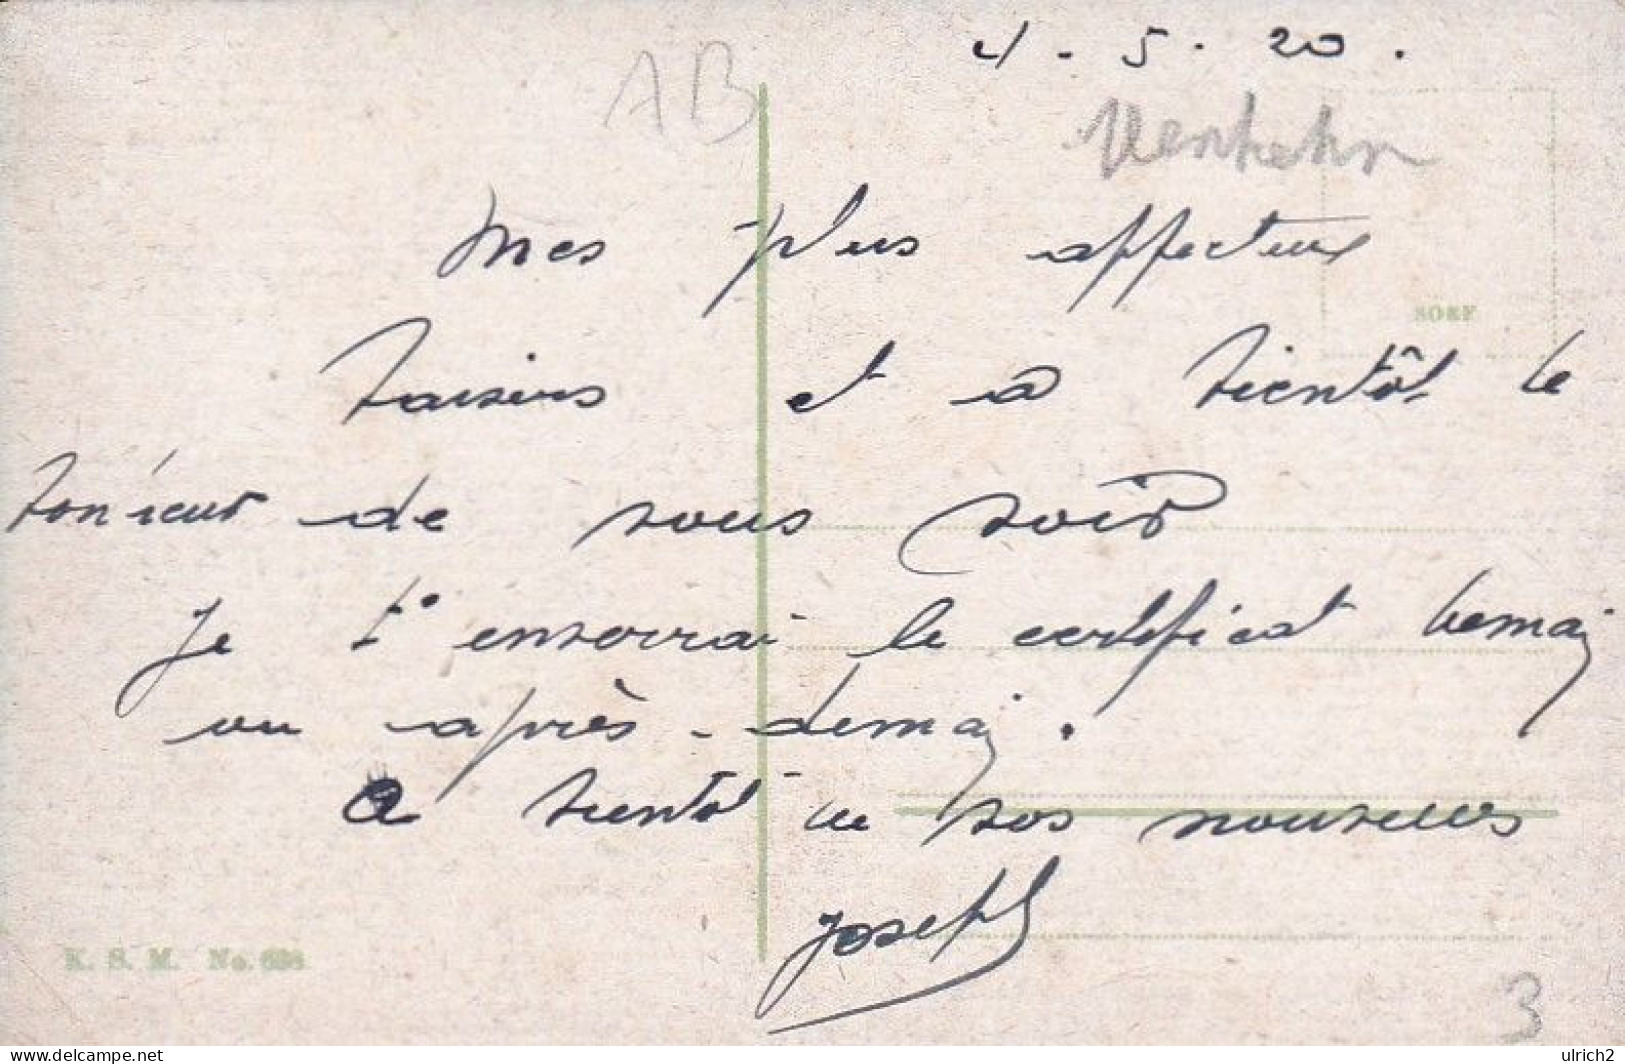 4 - 5 - 20 .
AB
Mes plus affectueux
SORF
baisers et a bientôt le
bonheur de vous voir
Je t'enverrai le certificat demain
ou après - demain .
A bientôt de vos nouvelles
Joseph
K. S. M. No. 698
3
delcampe.net
ulrich2